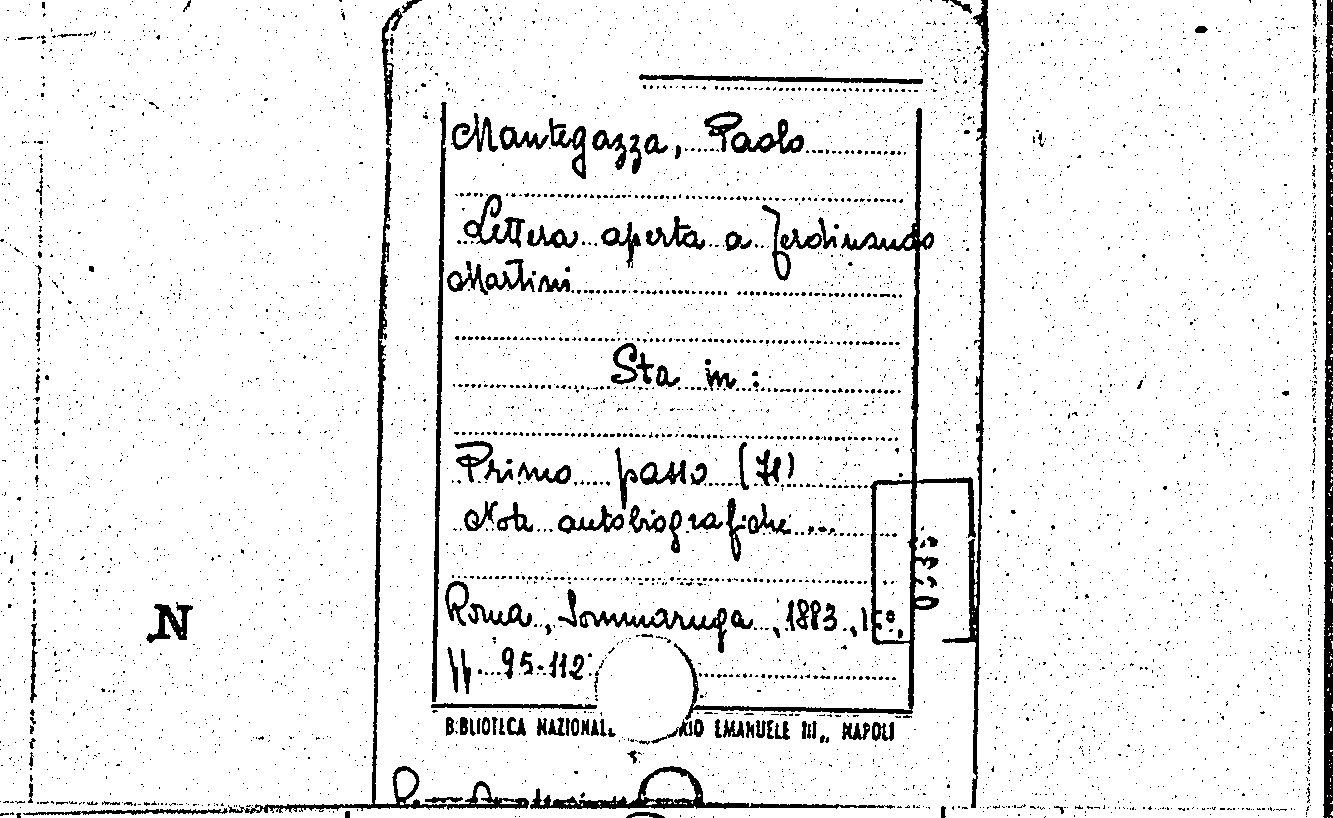 Mantegazza, Paolo
Lettera aperta a Ferdinando
Martini
Sta in :
Primo passo (Il)
Note autobiografiche ...
N
Roma, Sommaruga, 1883,
pp. 95-112
BIBLIOTECA NAZIONAL EMANUELE III,, NAPOLI